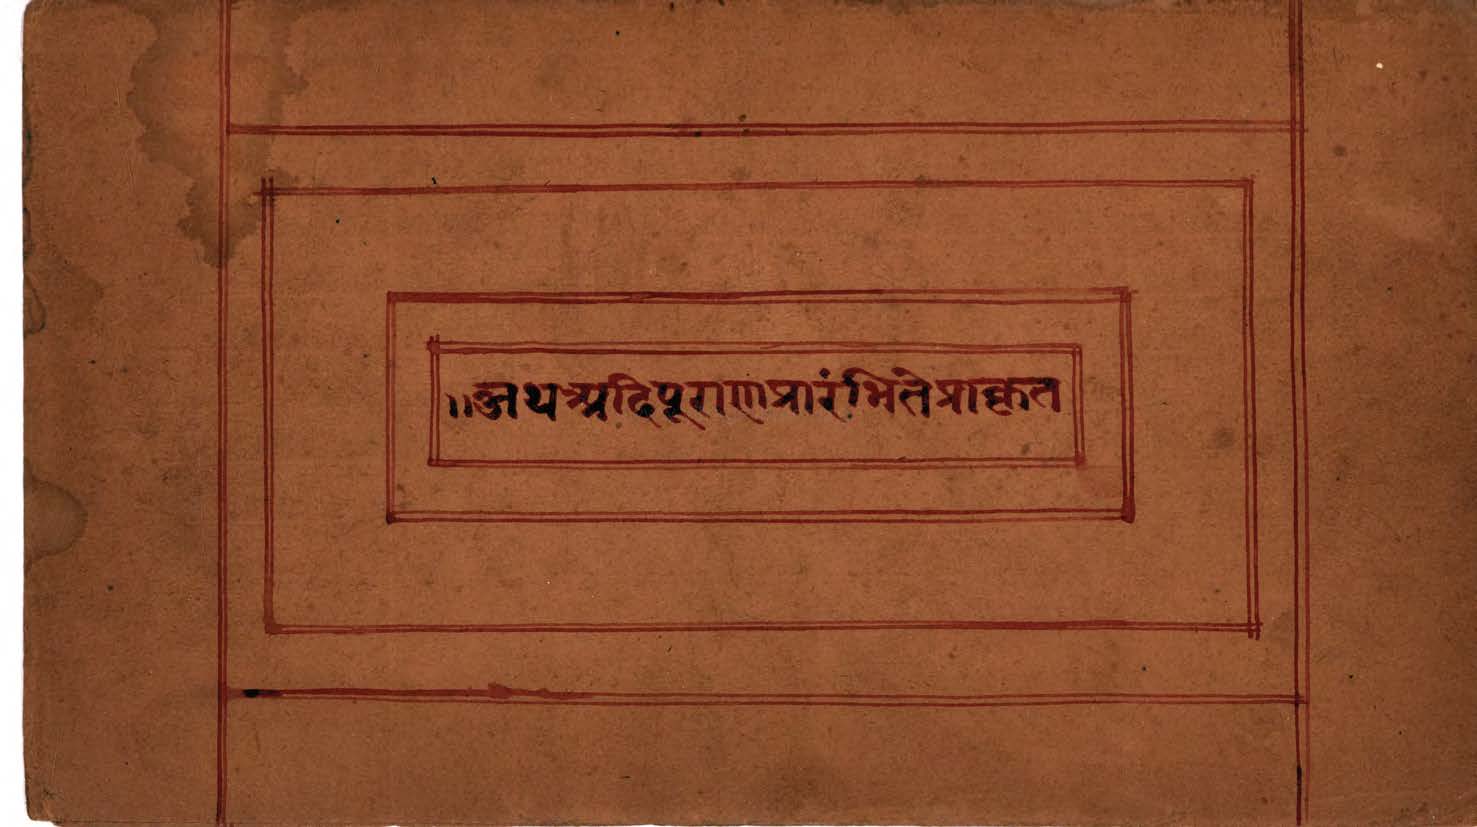 ॥अथअदिपूराणप्रारंभितेप्राकृत